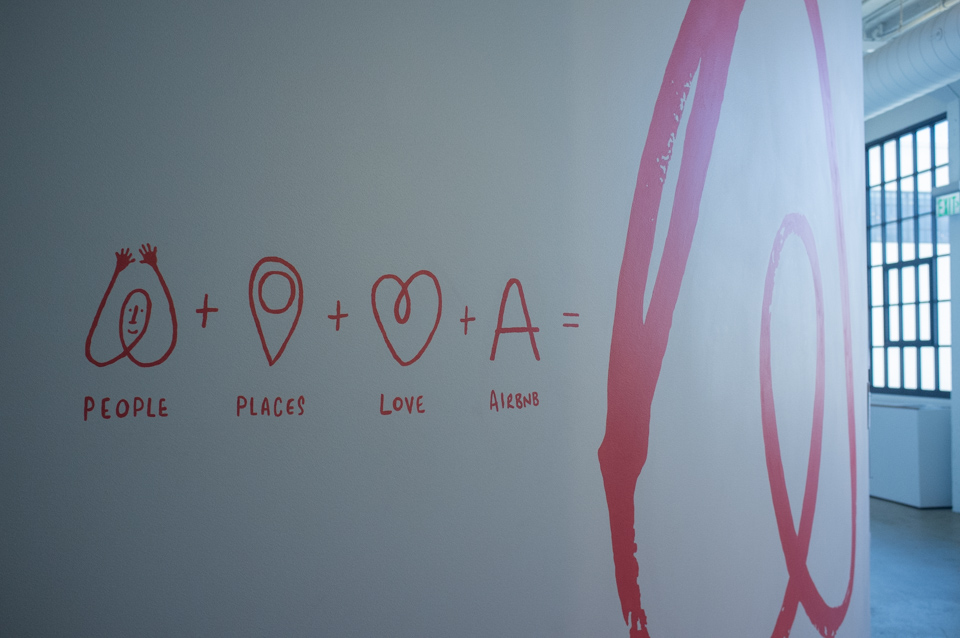 + + + A =
PEOPLE PLACES LOVE AIRBNB
EXIT